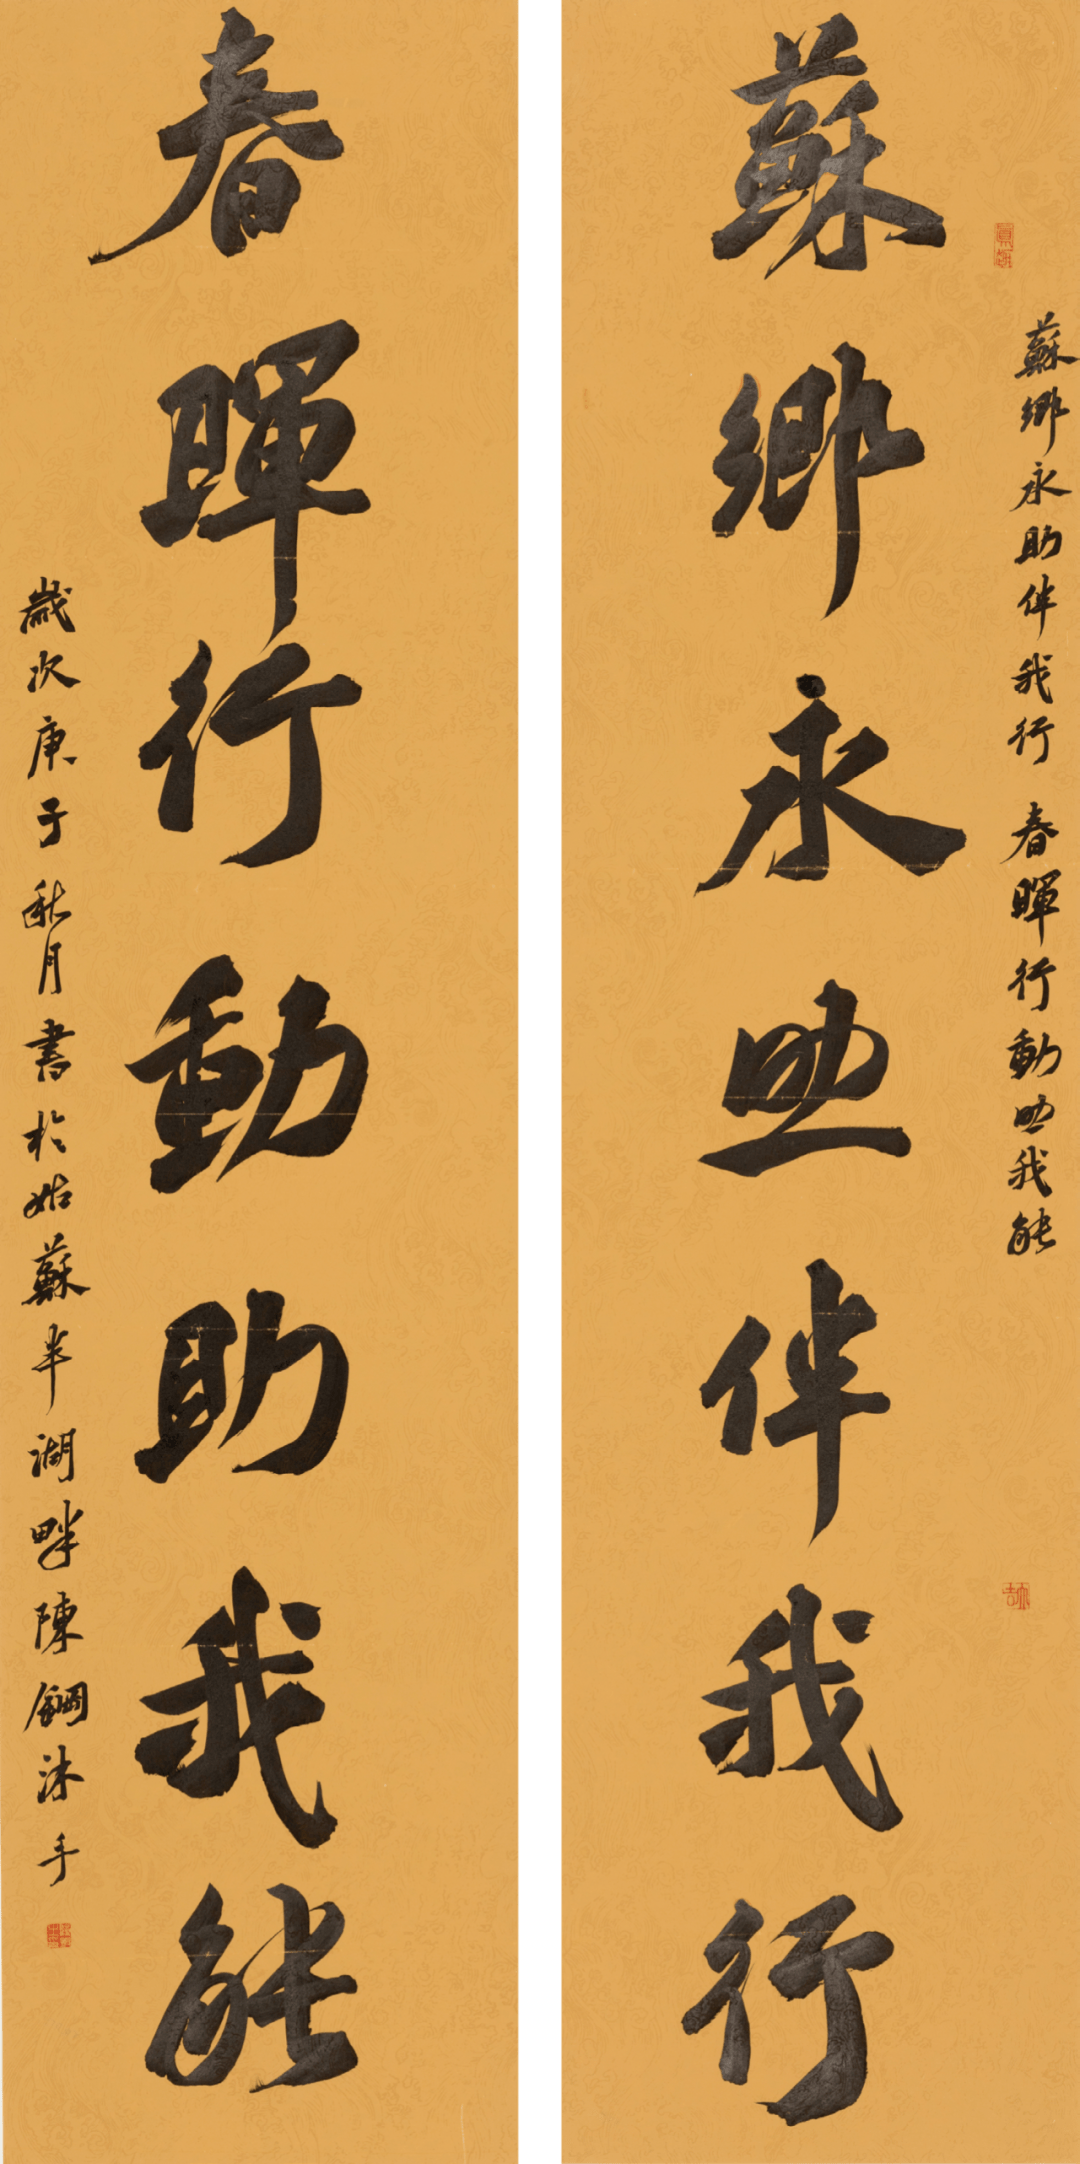 蘇鄉永助伴我行 春暉行動助我能
蘇鄉永助伴我行
春暉行動助我能
歲次庚子秋月書於姑蘇半湖畔陳鋼沐手